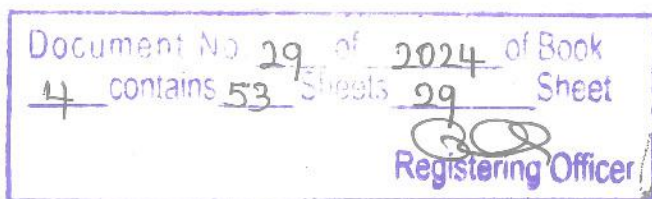 Document No 29 of 2024 of Book
4 contains 53 Sheets 29 Sheet
Registering Officer